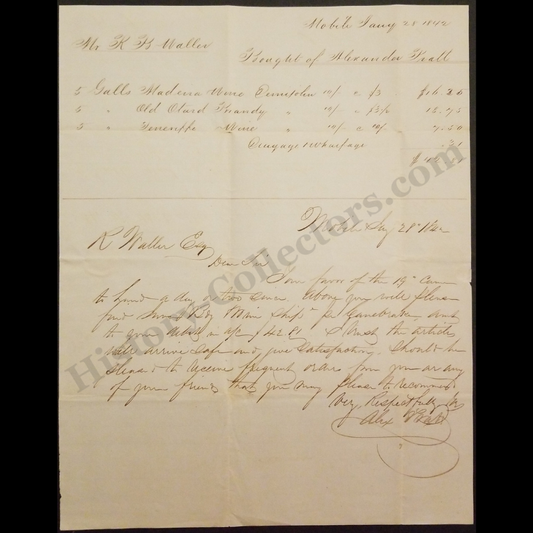 Mobile Jany 28 1842
Mr R B Waller
Bought of Alexander Pratt
5 Galls Madeira Wine Demijohn 10/- a $3 $16.25
5 " Old Otard Brandy " 10/-
5 " Teneriffe Wine " 10/-
Drayage & Wharfage
$
Mobile Jany 28th 1842
R Waller Esq
Dear Sir
Your favor of the 19th Came
to hand a day or two since above you will please
find Shipd pr Canebrake, amt
to your debit in a/c $42 I trust the articles
will arrive safe and give satisfaction. Should be
pleased to receive frequent orders from you or any
of your friends that you may please to recommend
Very Respectfully Yrs
Alex Pratt
Historic-Collectors.com